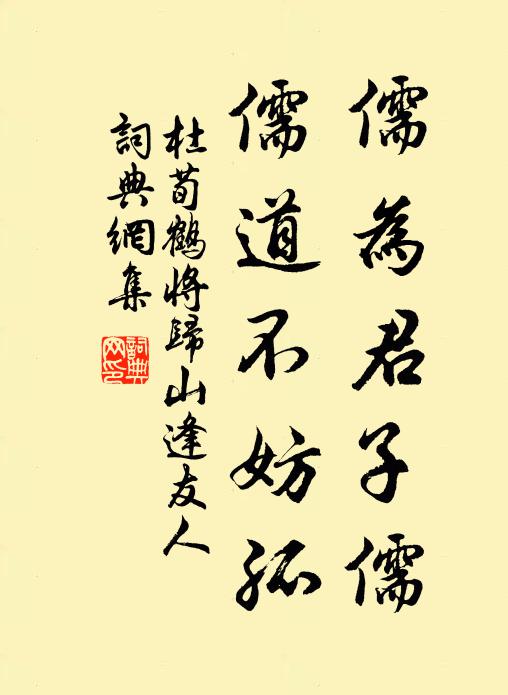 儒為君子儒
儒道不妨孤
杜荀鶴將歸山逢友人
詞典網集
詞典网印